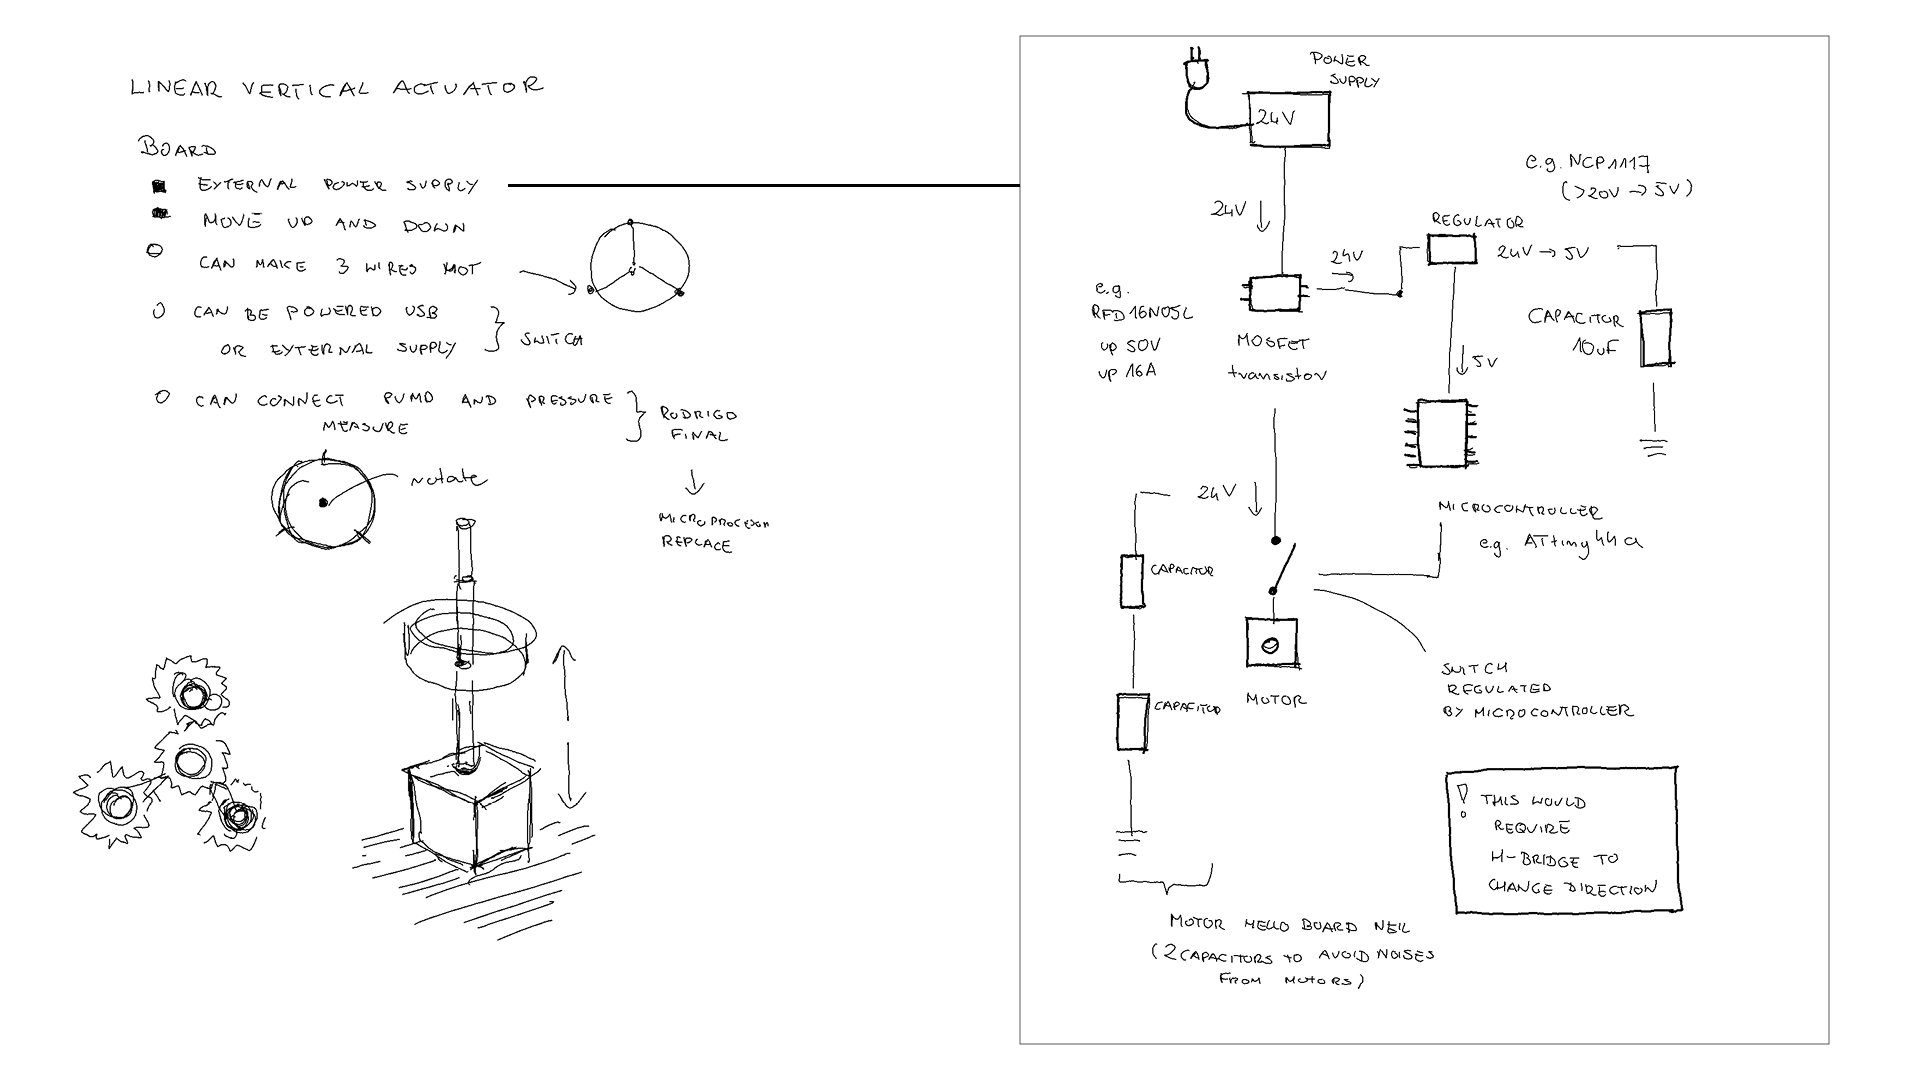 LINEAR VERTICAL ACTUATOR
BOARD
EXTERNAL POWER SUPPLY
MOVE UP AND DOWN
CAN MAKE 3 WIRES HOT
CAN BE POWERED USB
OR EXTERNAL SUPPLY
SWITCH
CAN CONNECT PUMP AND PRESSURE
MEASURE
RODRIGO
FINAL
MICROPROCESSOR
REPLACE
rotate
POWER
SUPPLY
24V
24V
e.g. NCP1117
(>20V → 5V)
REGULATOR
24V → 5V
24V
e.g.
RFD16N05L
up 50V
up 16A
MOSFET
transistor
CAPACITOR
10uF
5V
MICROCONTROLLER
e.g. ATtiny44a
24V
CAPACITOR
CAPACITOR
MOTOR
SWITCH
REGULATED
BY MICROCONTROLLER
! THIS WOULD
REQUIRE
H-BRIDGE TO
CHANGE DIRECTION
MOTOR HELLO BOARD NEIL
(2 CAPACITORS TO AVOID NOISES
FROM MOTORS)